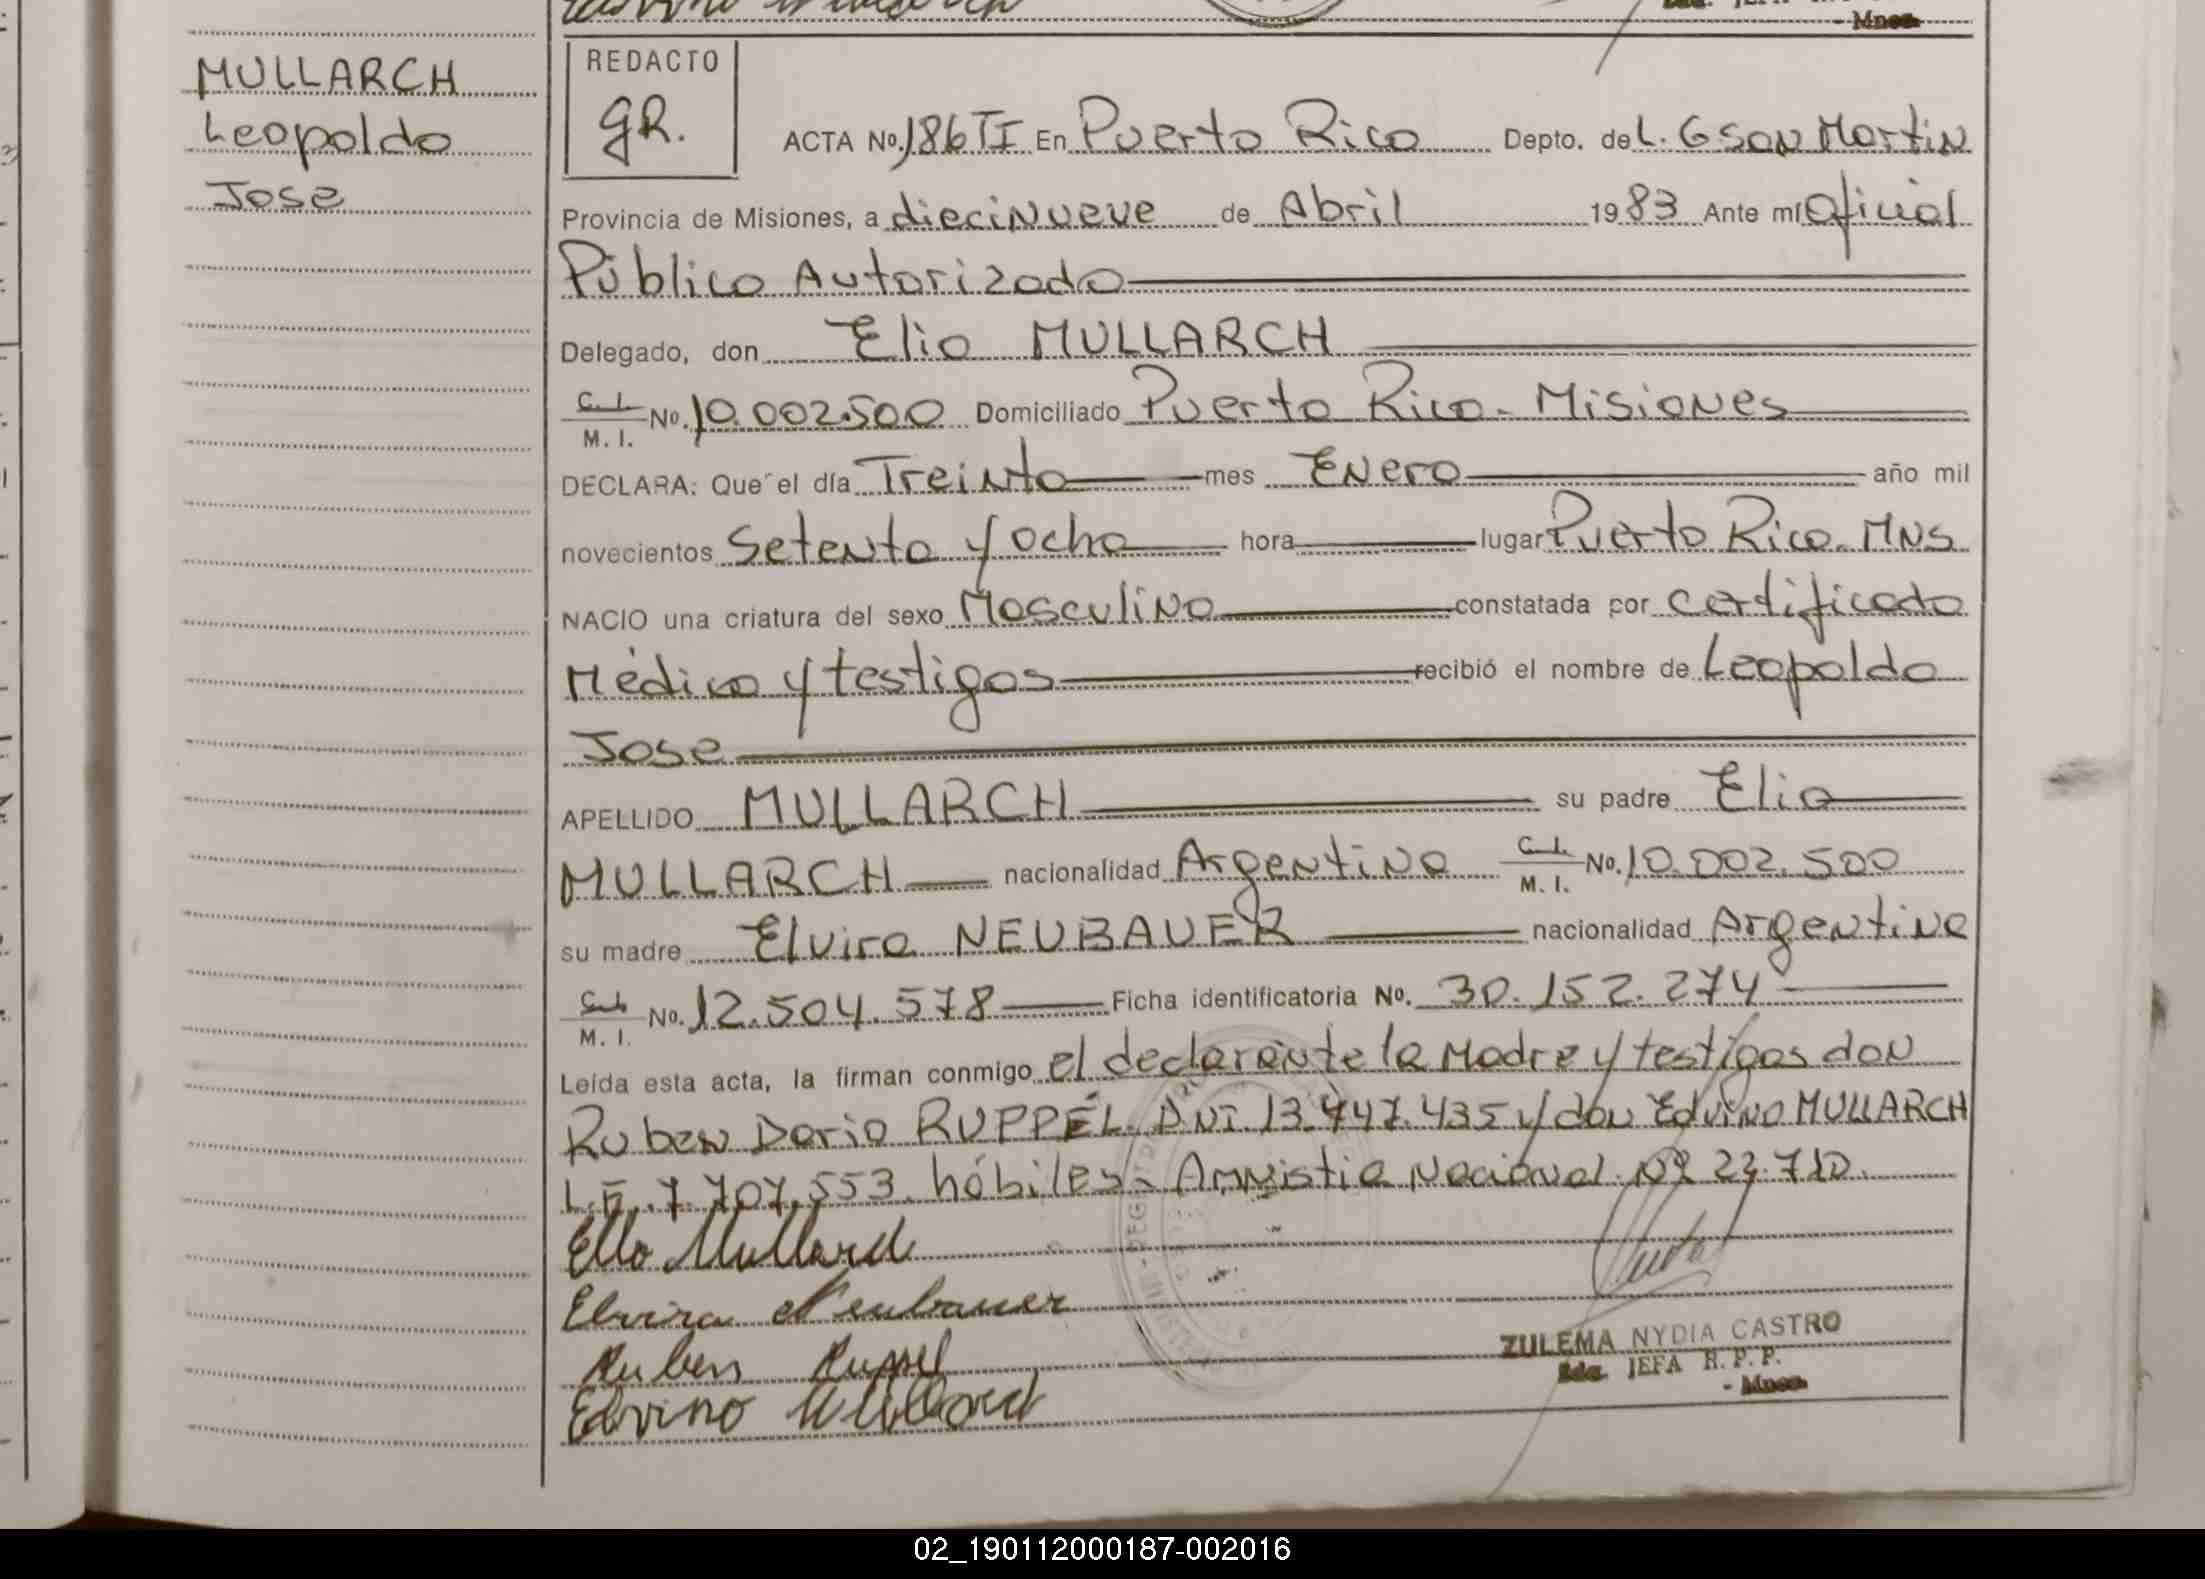 MULLARCH
Leopoldo
Jose
REDACTO
GR.
ACTA No. 186 TI En Puerto Rico Depto. de L. G San Martin
Provincia de Misiones, a diecinueve de Abril 1983 Ante mí Oficial
Público Autorizado
Delegado, don Elio MULLARCH
C. I. M. I. No. 10.002.500 Domiciliado Puerto Rico - Misiones
DECLARA: Que el día Treinta mes Enero año mil
novecientos Setenta y ocho hora lugar Puerto Rico. MNS
NACIO una criatura del sexo Masculino constatada por certificado
Médico y testigos recibió el nombre de Leopoldo
Jose
APELLIDO MULLARCH su padre Elio
MULLARCH nacionalidad Argentino C. I. M. I. No. 10.002.500
su madre Elvira NEUBAUER nacionalidad Argentina
C. I. M. I. No. 12.504.578 Ficha identificatoria No. 30.152.274
Leída esta acta, la firman conmigo el declarante la Madre y testigos don
Ruben Dario RUPPEL. DNI. 13.447.435 y don Edvino MULLARCH
L.E. 7.707.553 hábiles - Amnistia Nacional Nº 22.710.
Elio Mullarch
Elvira Neubauer
Ruben Ruppel
Edvino Mullarch
ZULEMA NYDIA CASTRO
JEFA R. P. P.
- Mnes
02_190112000187-002016